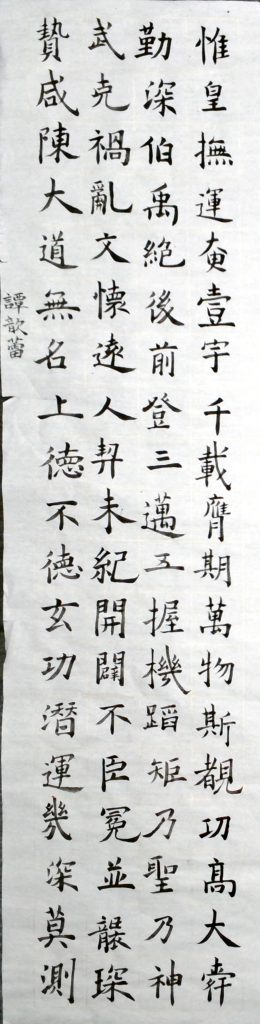 惟皇撫運奄壹宇千載膺期萬物斯覩功高大舜
勤深伯禹絕後前登三邁五握機蹈矩乃聖乃神
武克禍亂文懷遠人契未紀開闢不臣冕並襲琛
贄咸陳大道無名上德不德玄功潛運幾深莫測
譚歆蕾